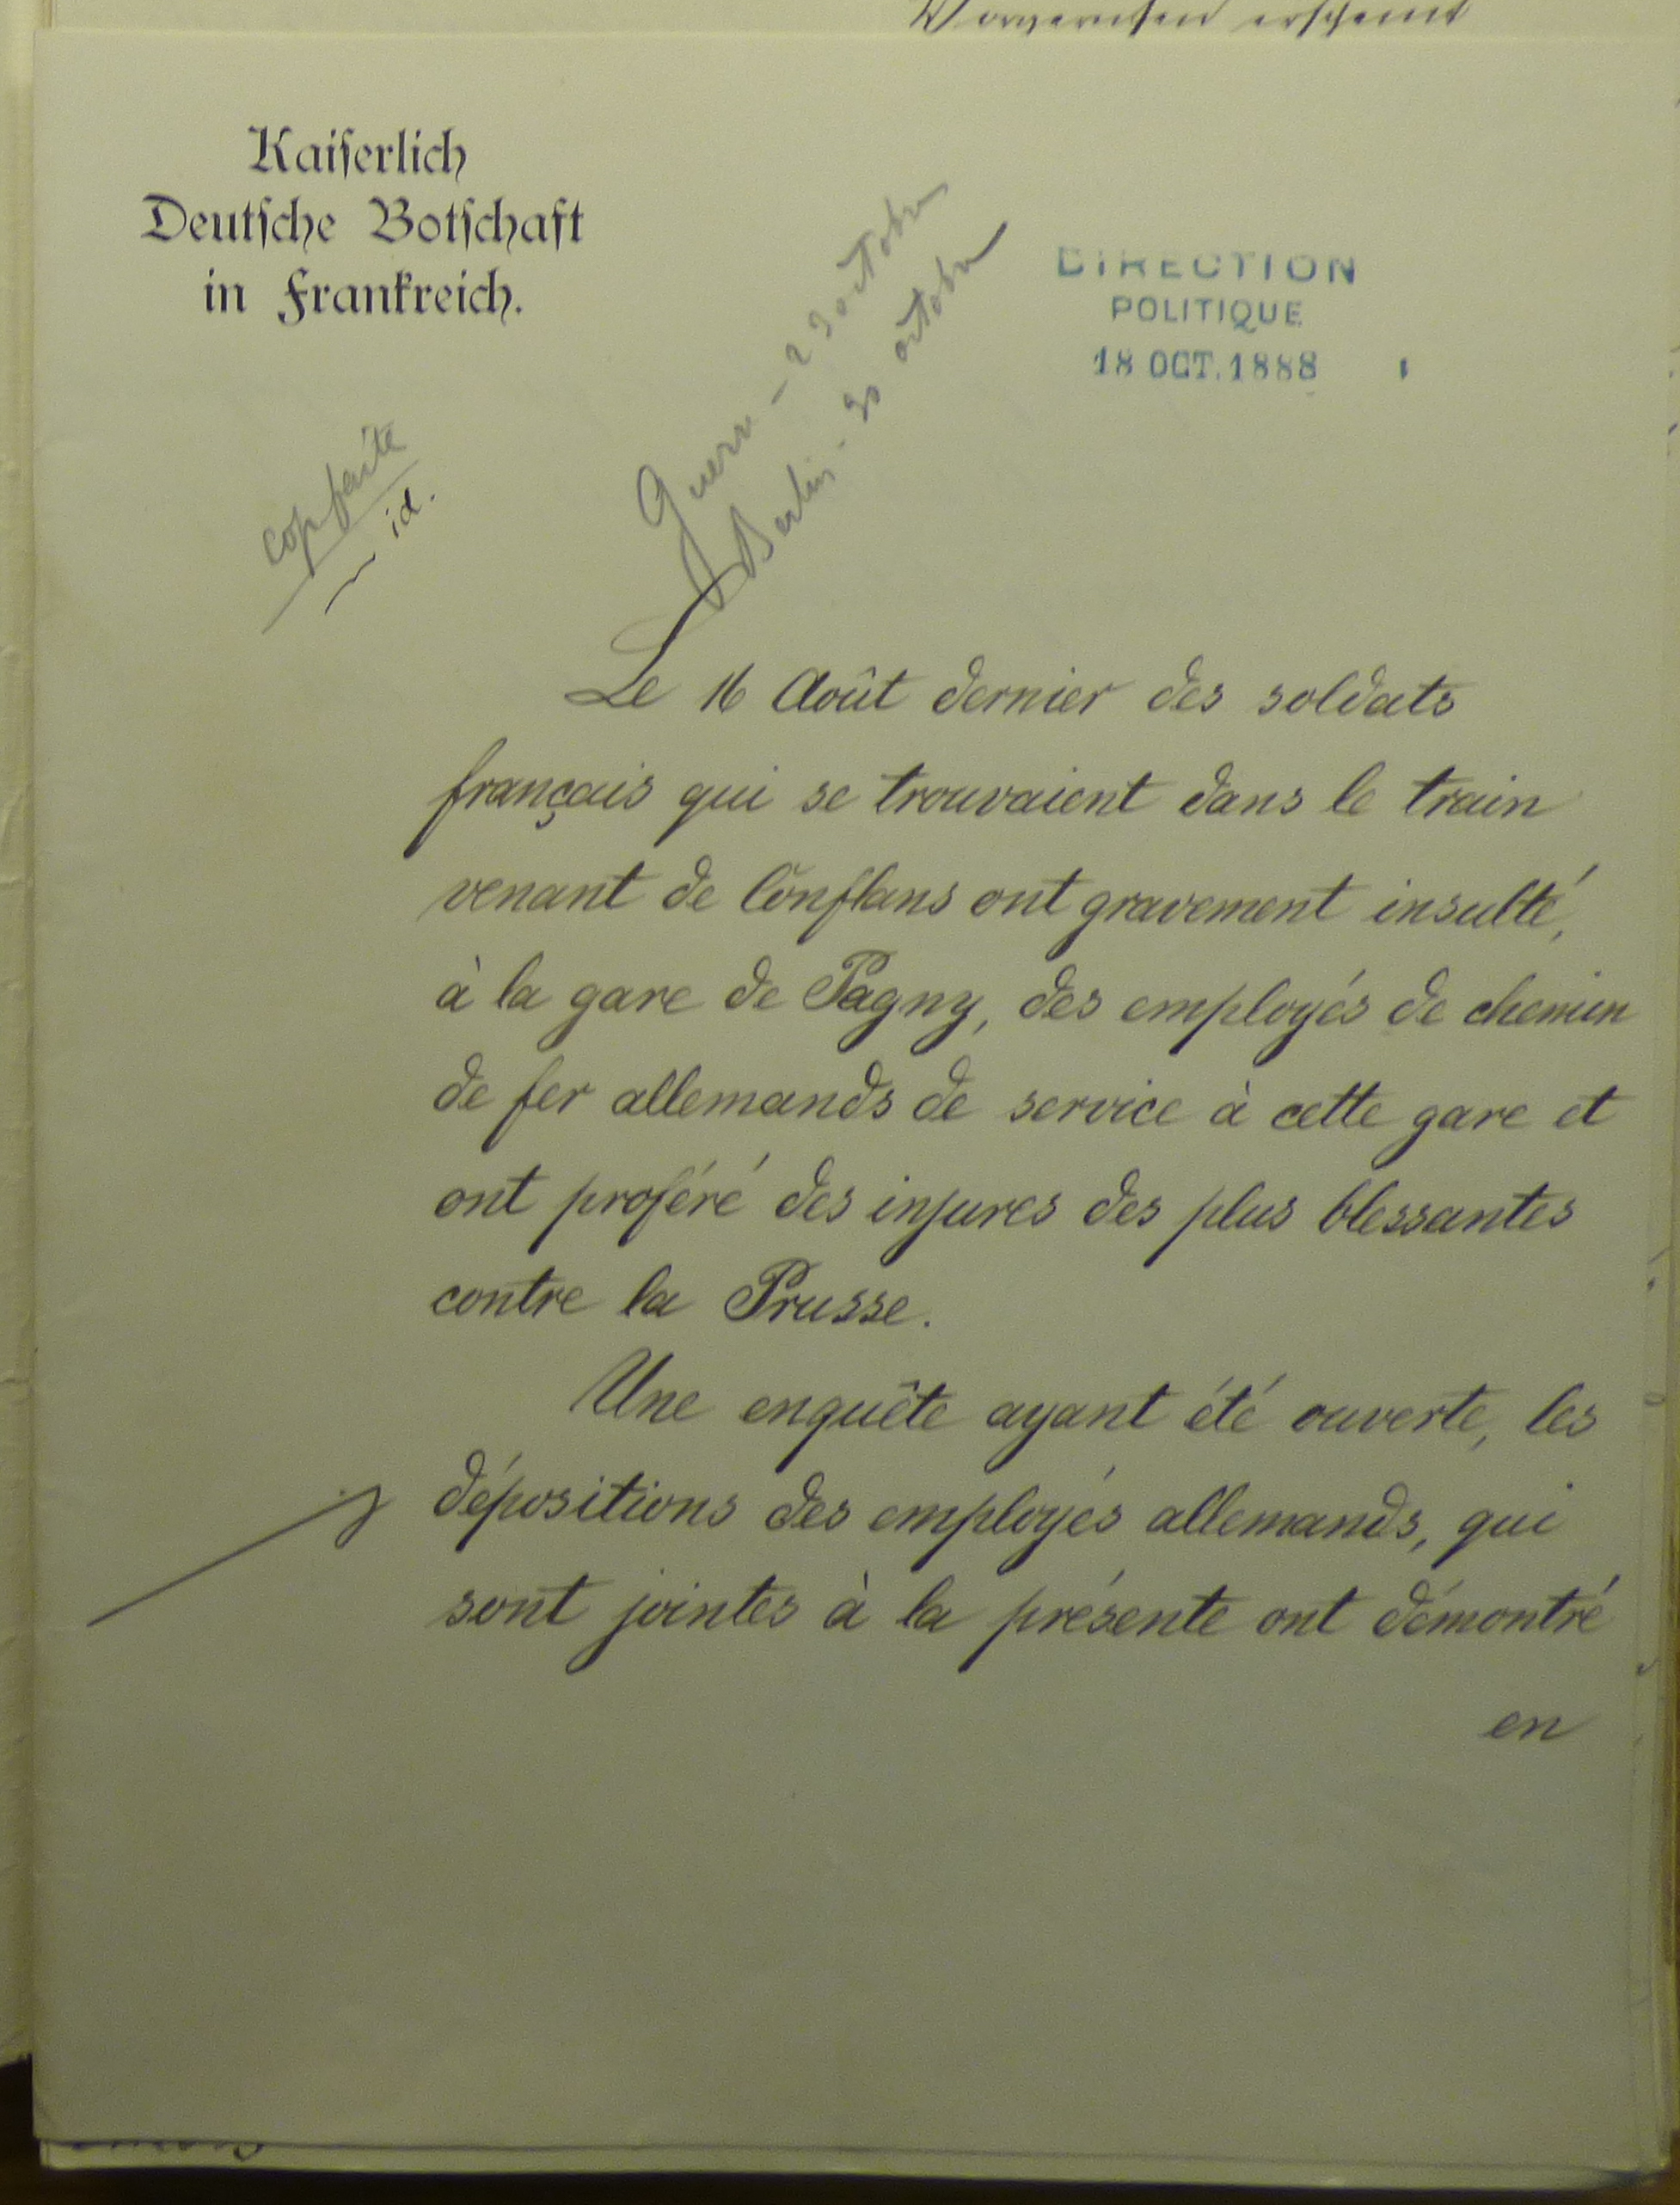 Vorgerufen erscheint
Kaiserlich
Deutsche Botschaft
in Frankreich.
DIRECTION
POLITIQUE
18 OCT. 1888
Guerre - 23 octobre
Berlin - 30 octobre
cop faite
id.
Le 16 Août dernier des soldats
français qui se trouvaient dans le train
venant de Conflans ont gravement insulté,
à la gare de Pagny, des employés de chemin
de fer allemands de service à cette gare et
ont proféré des injures des plus blessantes
contre la Prusse.
Une enquête ayant été ouverte, les
dépositions des employés allemands, qui
sont jointes à la présente ont démontré
en